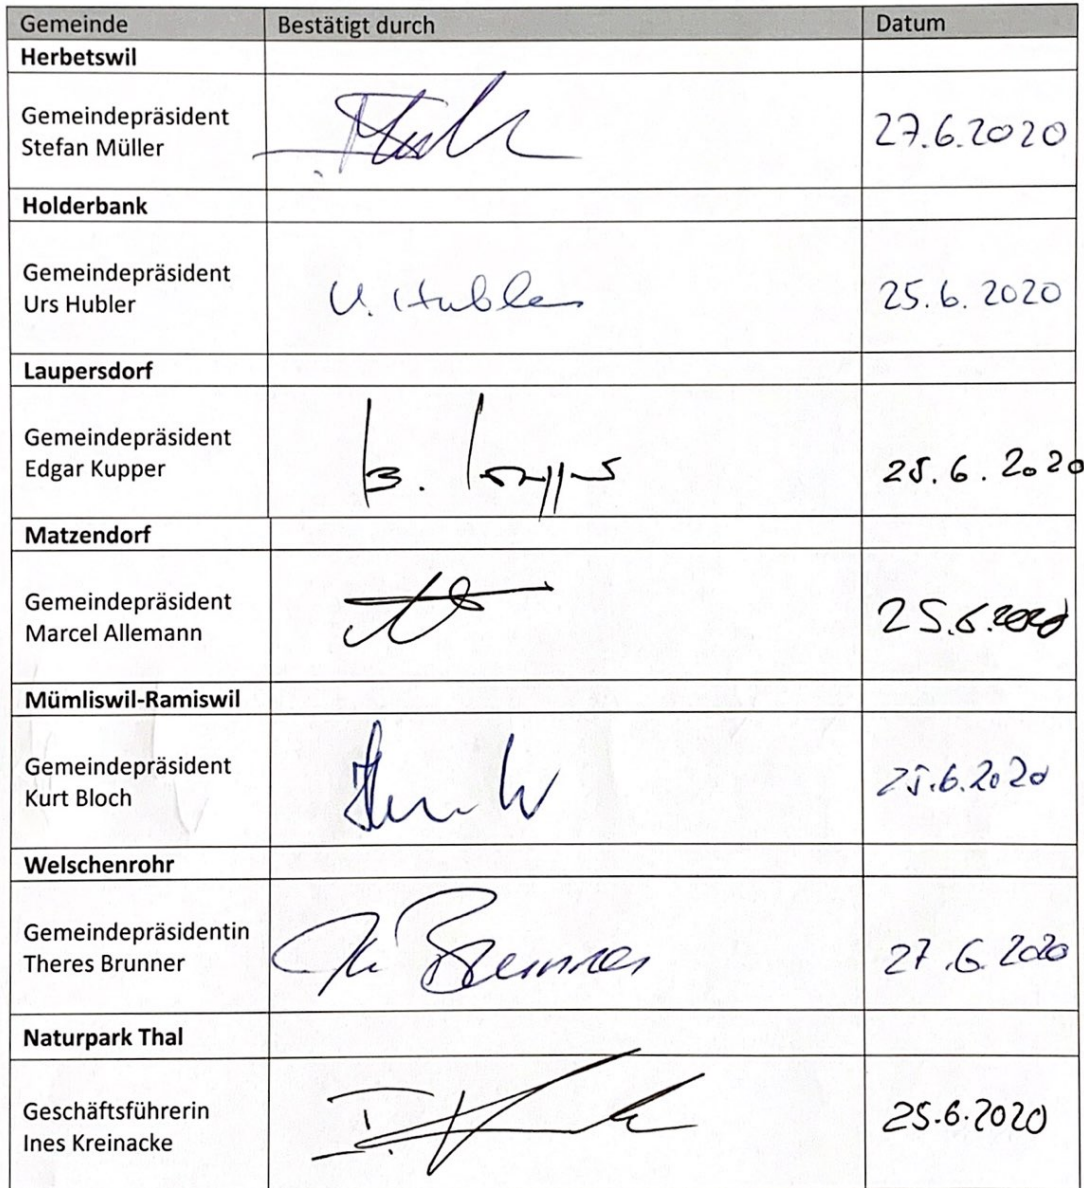 Gemeinde Bestätigt durch Datum
Herbetswil
Gemeindepräsident
Stefan Müller
27.6.2020
Holderbank
Gemeindepräsident
Urs Hubler
U. Hubler 25.6.2020
Laupersdorf
Gemeindepräsident
Edgar Kupper
25.6.2020
Matzendorf
Gemeindepräsident
Marcel Allemann
25.6.2020
Mümliswil-Ramiswil
Gemeindepräsident
Kurt Bloch
25.6.2020
Welschenrohr
Gemeindepräsidentin
Theres Brunner
Th. Brunner 27.6.2020
Naturpark Thal
Geschäftsführerin
Ines Kreinacke
25.6.2020